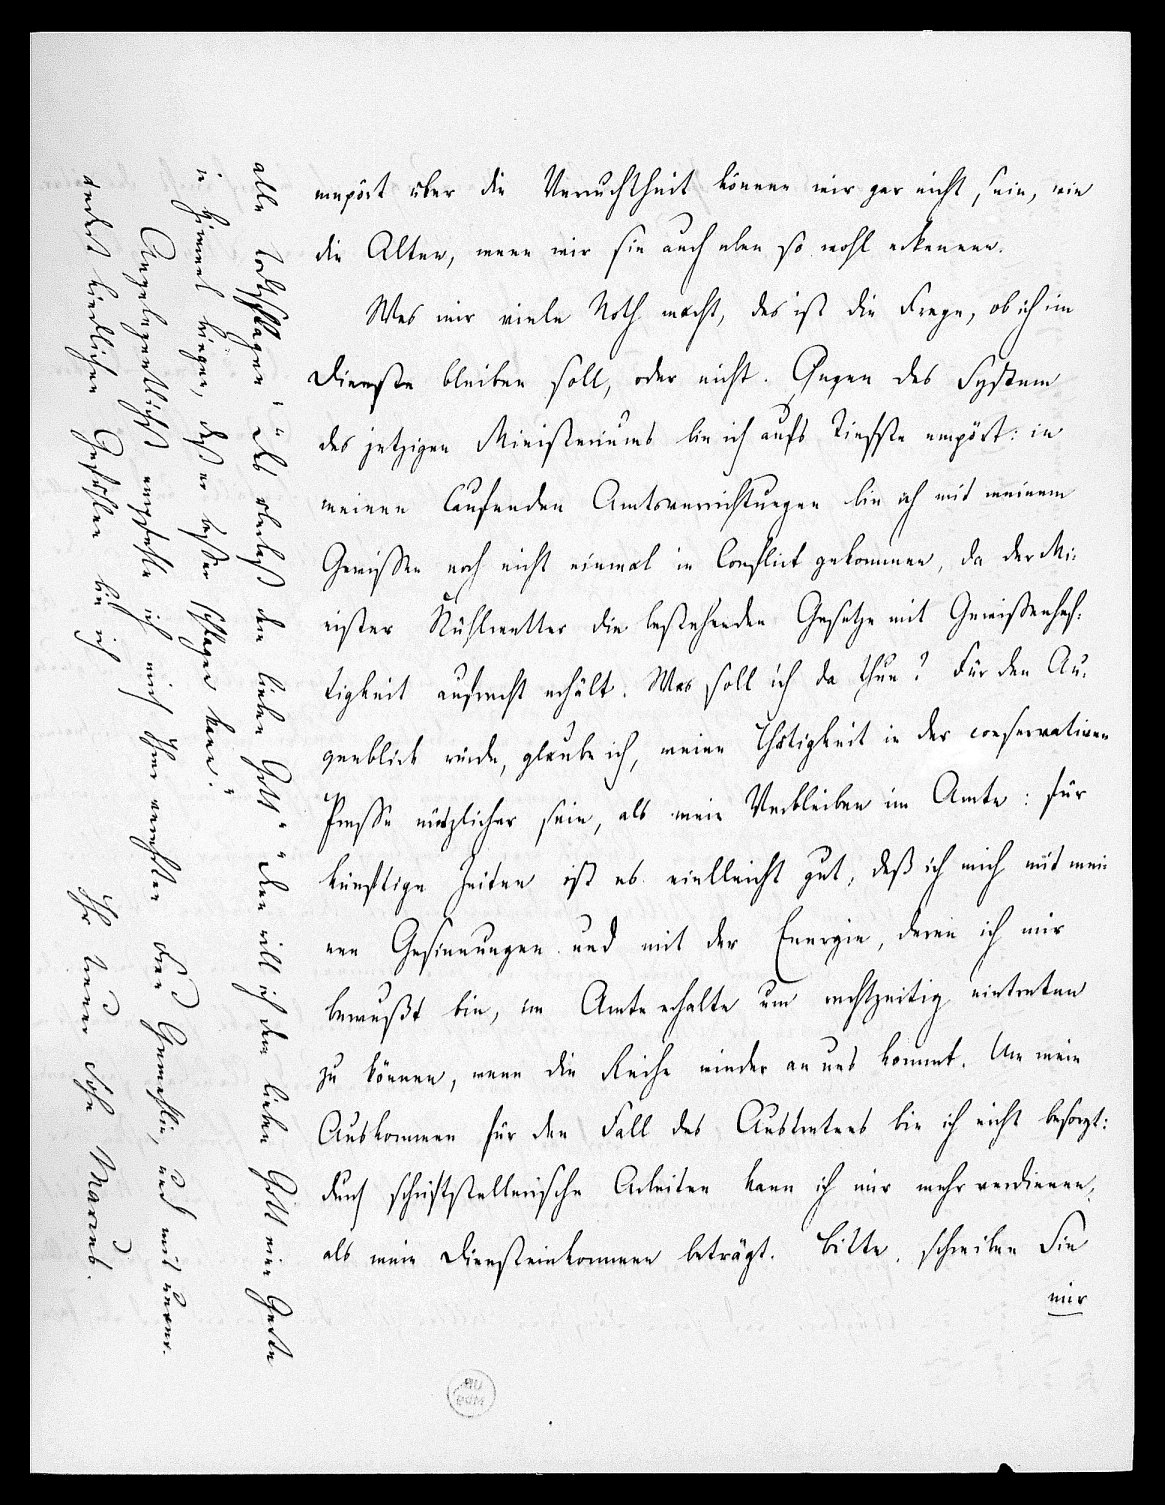 empört über die Verruchtheit können wir gar nicht sein, wie
die Alten, wenn wir sie auch eben so wohl erkennen.
Was mir viele Noth macht, das ist die Frage, ob ich im
Dienste bleiben soll, oder nicht. Gegen das System
des jetzigen Ministeriums bin ich aufs Tiefste empört: in
meinen laufenden Amtsverrichtungen bin ich mit meinem
Gewissen noch nicht einmal in Conflict gekommen, da der Mi-
nister Kühlwetter die bestehenden Gesetze mit Gewissenhaf-
tigkeit aufrecht erhält. Was soll ich da thun? Für den Au-
genblick würde, glaube ich, meine Thätigkeit in der conservativen
Presse nützlicher sein, als mein Verbleiben im Amte: für
künftige Zeiten ist es vielleicht gut, daß ich mich mit mei-
nen Gesinnungen und mit der Energie, deren ich mir
bewußt bin, im Amte erhalte um rechtzeitig eintreten
zu können, wenn die Reihe wieder an uns kommt. Um mein
Auskommen für den Fall des Austretens bin ich nicht besorgt:
durch schriftstellerische Arbeiten kann ich mir mehr verdienen,
als mein Diensteinkommen beträgt. Bitte, schreiben Sie
mir
alle todtschlagen" "Das überlaß dem lieben Gott" "Dann will ich dem lieben Gott eine Gerte
in Himmel bringen, daß er besser schlagen kann."
Angelegentlichst empfehle ich mich Ihrer verehrten Frau Gemahlin, und mit unver-
ändert kindlichen Gefühlen bin ich
Ihr treuer Sohn Marcus.